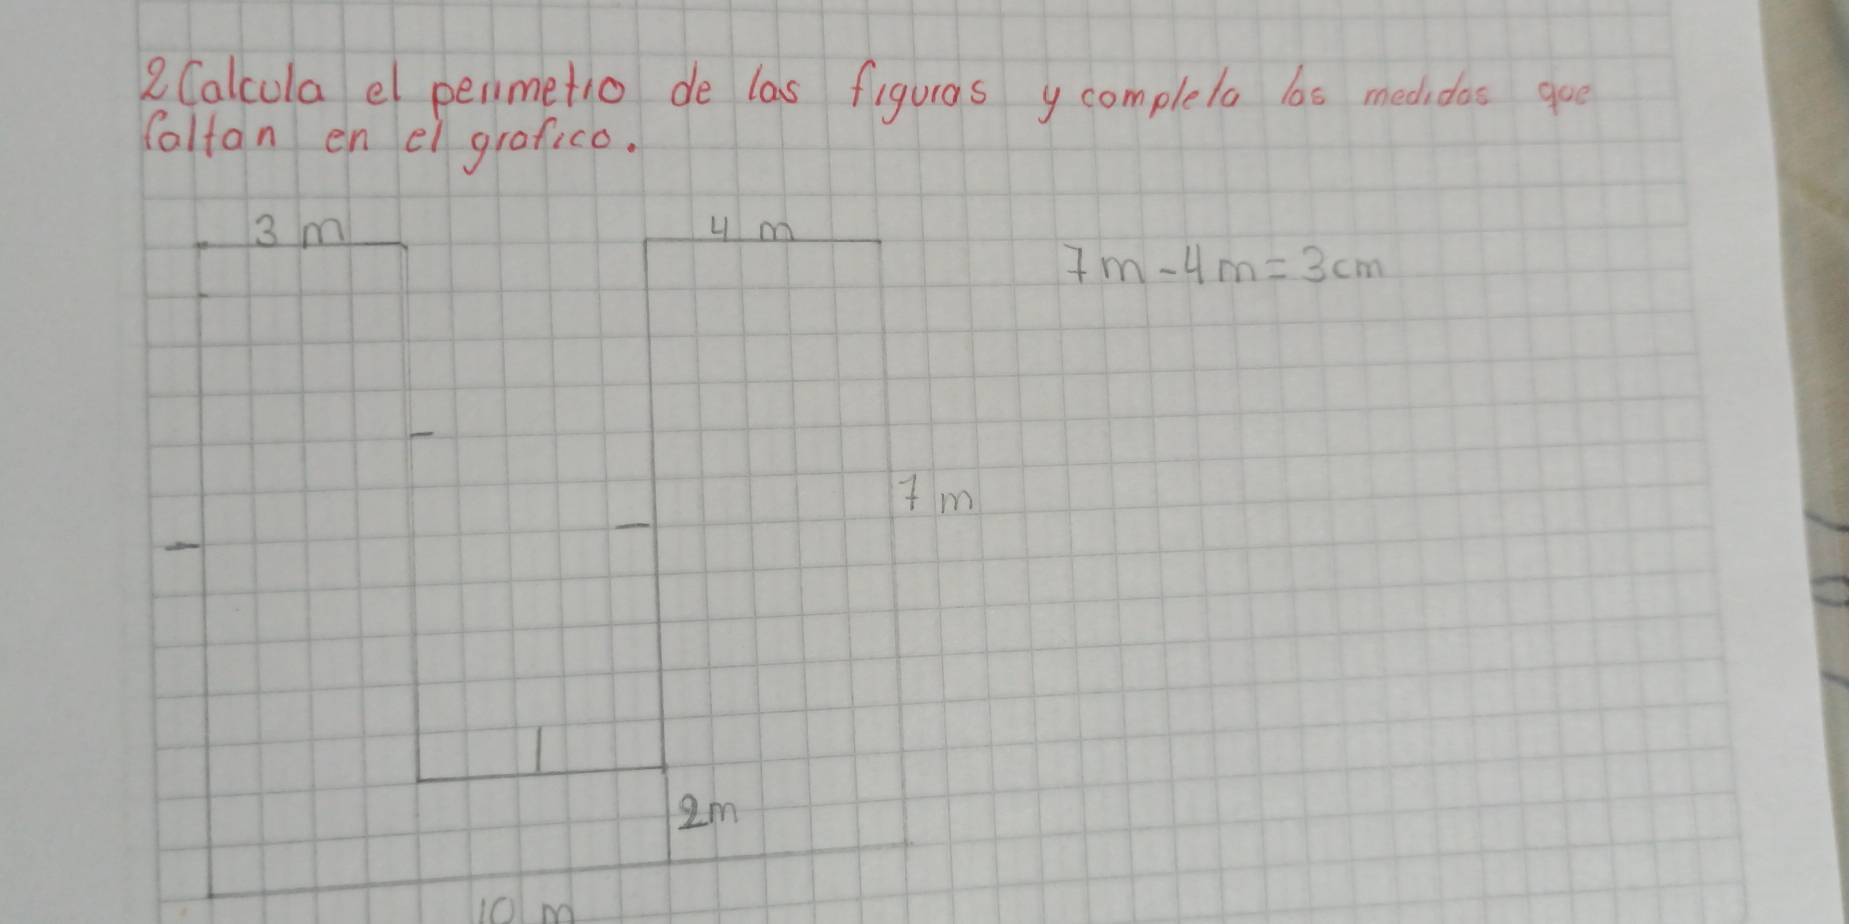 2 Calcula el perimetro de las figuras y completa las medidas que
faltan en el grafico.
3 m
4 m
7m-4m=3cm
7 m
2m
10 m